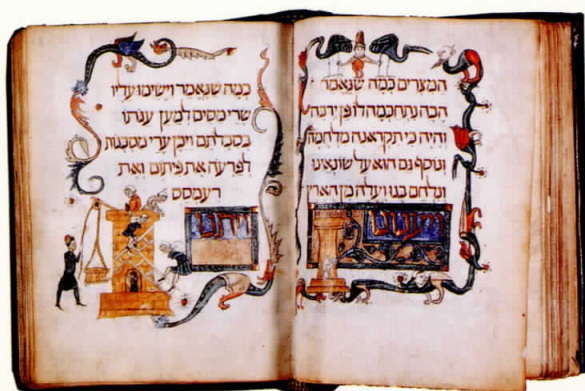 המצרים כמה שנאמר
הבה נתחכמה לו פן ירבה
והיה כי תקראנה מלחמה
ונוסף גם הוא על שונאינו
ונלחם בנו ועלה מן הארץ
ויענונו
כמה שנאמר וישימו עליו
שרי מסים למען ענתו
בסבלתם ויבן ערי מסכנות
לפרעה את פיתום ואת
רעמסס
ויתנו